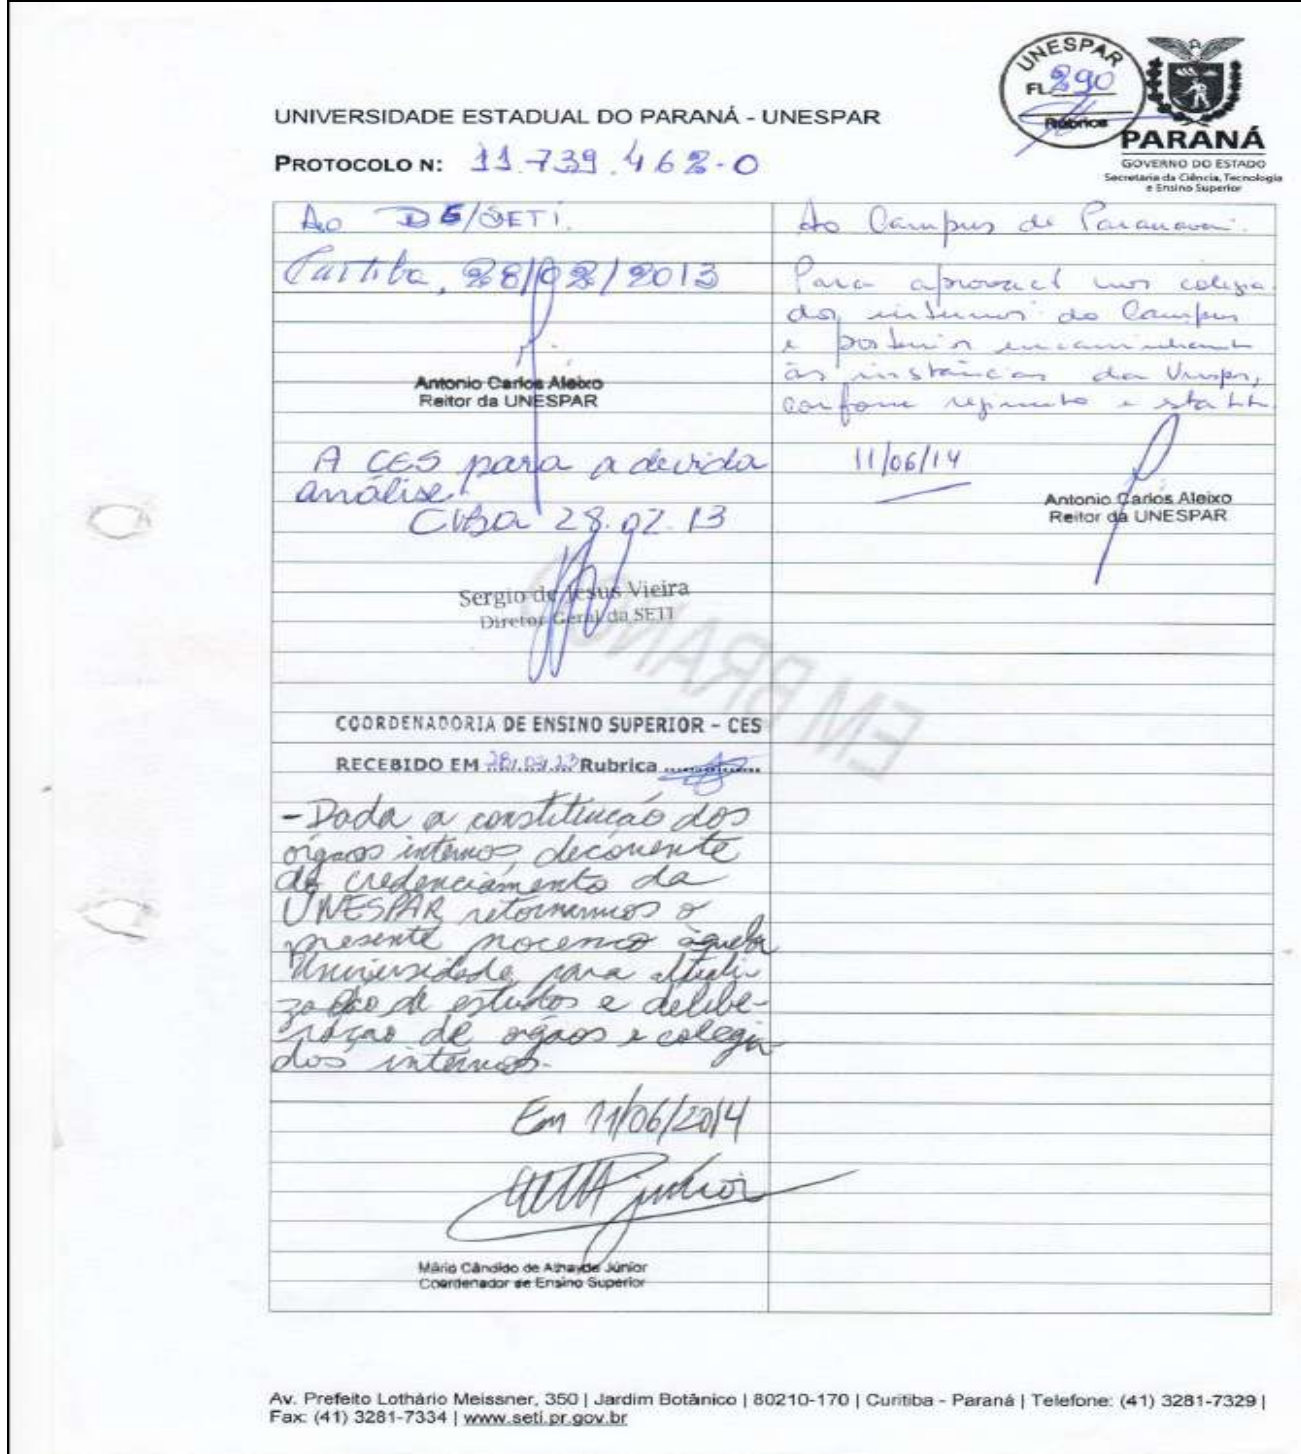 UNESPAR
FL. 290
Rubrica
PARANÁ
GOVERNO DO ESTADO
Secretaria da Ciência, Tecnologia
e Ensino Superior
UNIVERSIDADE ESTADUAL DO PARANÁ - UNESPAR
PROTOCOLO N: 11.739.462-0
Ao DG/SETI.
Curitiba, 28/02/2013
Antonio Carlos Aleixo
Reitor da UNESPAR
A CES para a devida
análise.
Ctba 28.02.13
Sergio de Jesus Vieira
Diretor Geral da SETI
COORDENADORIA DE ENSINO SUPERIOR - CES
RECEBIDO EM Rubrica
- Dada a constituição dos
órgãos internos, decorrente
do credenciamento da
UNESPAR, retornamos o
presente processo àquela
Universidade, para atuali-
zação de estudos e delibe-
ração de órgãos e colegia-
dos internos.
Em 11/06/2014
Mário Cândido de Athayde Júnior
Coordenador de Ensino Superior
Ao Campus de Paranavaí.
Para nos colegia-
dos internos do Campus
e posterior
às instâncias da
conforme regimento e
11/06/14
Antonio Carlos Aleixo
Reitor da UNESPAR
EM BRANCO
Av. Prefeito Lothário Meissner, 350 | Jardim Botânico | 80210-170 | Curitiba - Paraná | Telefone: (41) 3281-7329 |
Fax: (41) 3281-7334 | www.seti.pr.gov.br